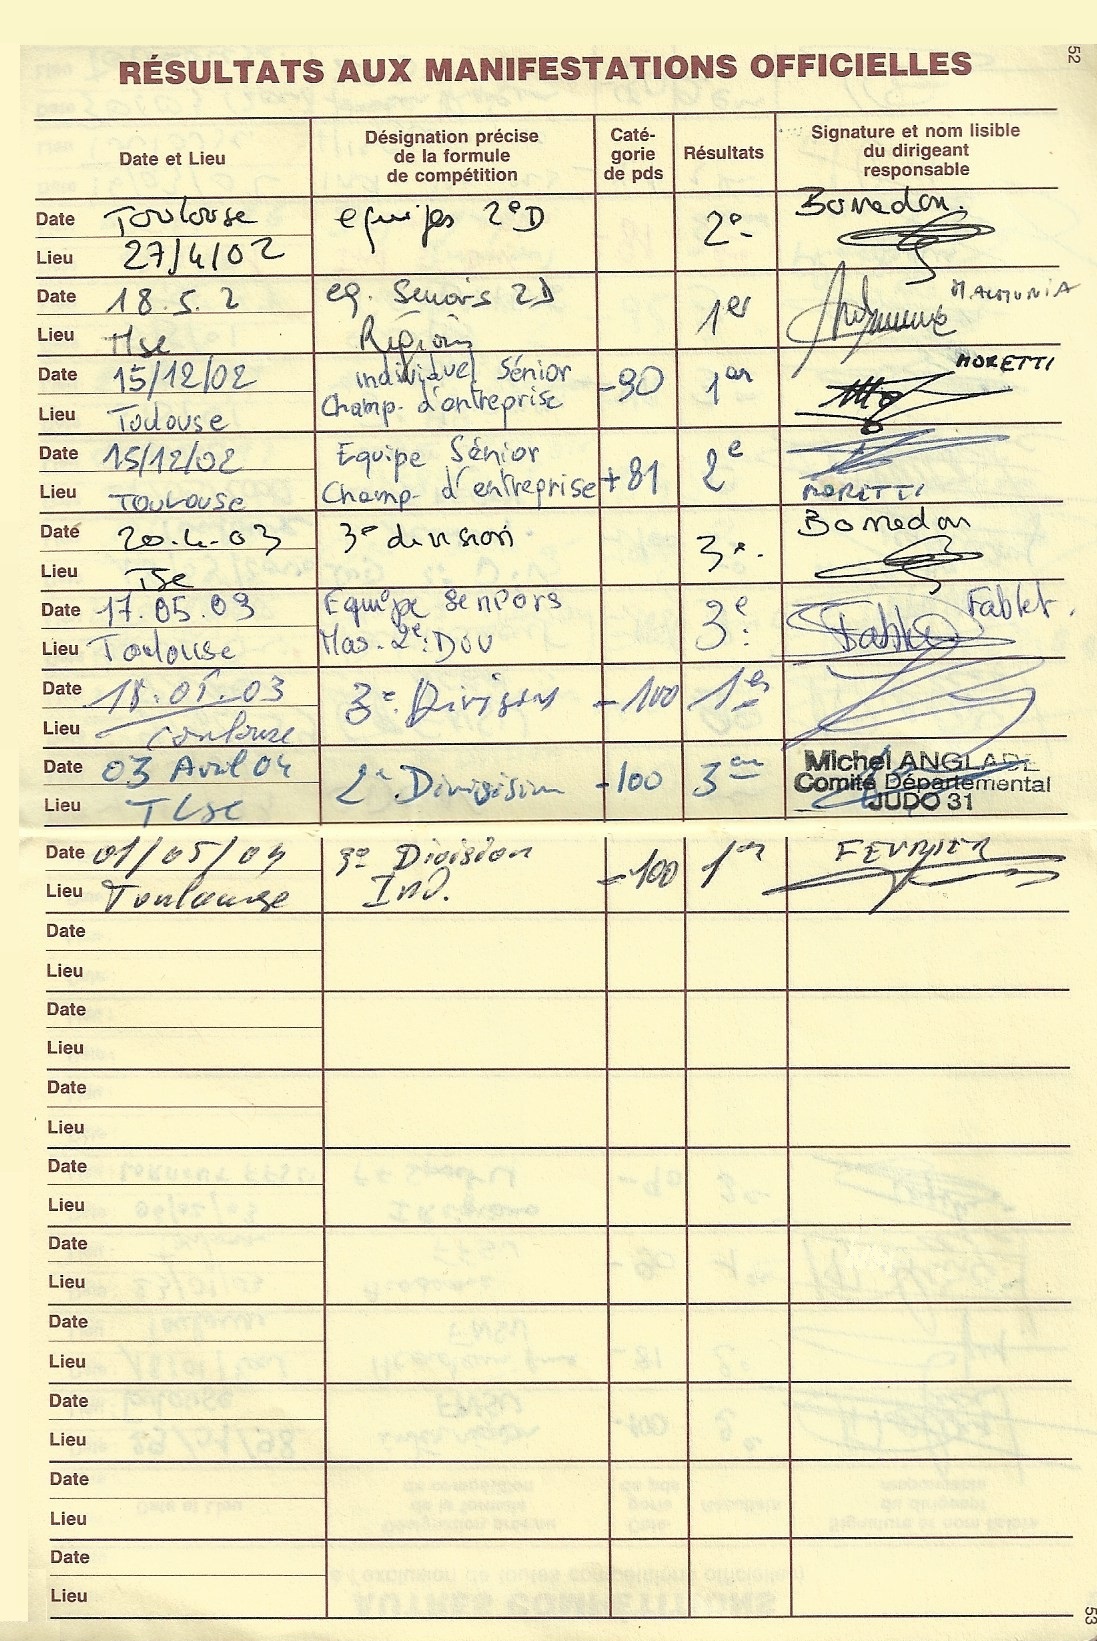 52
RÉSULTATS AUX MANIFESTATIONS OFFICIELLES
Date et Lieu
Désignation précise
de la formule
de compétition
Caté-
gorie
de pds
Résultats
Signature et nom lisible
du dirigeant
responsable
Date Toulouse equipes 2eD 2e Bonnedon.
Lieu 27/4/02
Date 18.5.2 eq. Seniors 2D 1er M.ALMUNIA
Lieu Tlse Régions
Date 15/12/02 individuel Sénior -90 1er MORETTI
Lieu Toulouse Champ. d'entreprise
Date 15/12/02 Equipe Sénior +81 2e
Lieu Toulouse Champ. d'entreprise MORETTI
Date 20.4.03 3e division 3e. Bonnedon
Lieu Tse
Date 17.05.03 Equipe Seniors 3e. Fablet.
Lieu Toulouse Mas. 2e. DIV
Date 18.05.03 3e Division -100 1er
Lieu Toulouse
Date 03 Avril 04 2e Division -100 3em Michel ANGLADE
Comité Départemental
Lieu Tlse JUDO 31
Date 01/05/04 3e Division -100 1er FEVRIER
Lieu Toulouse IND.
Date
Lieu
Date
Lieu
Date
Lieu
Date
Lieu
Date
Lieu
Date
Lieu
Date
Lieu
Date
Lieu
Date
Lieu
53